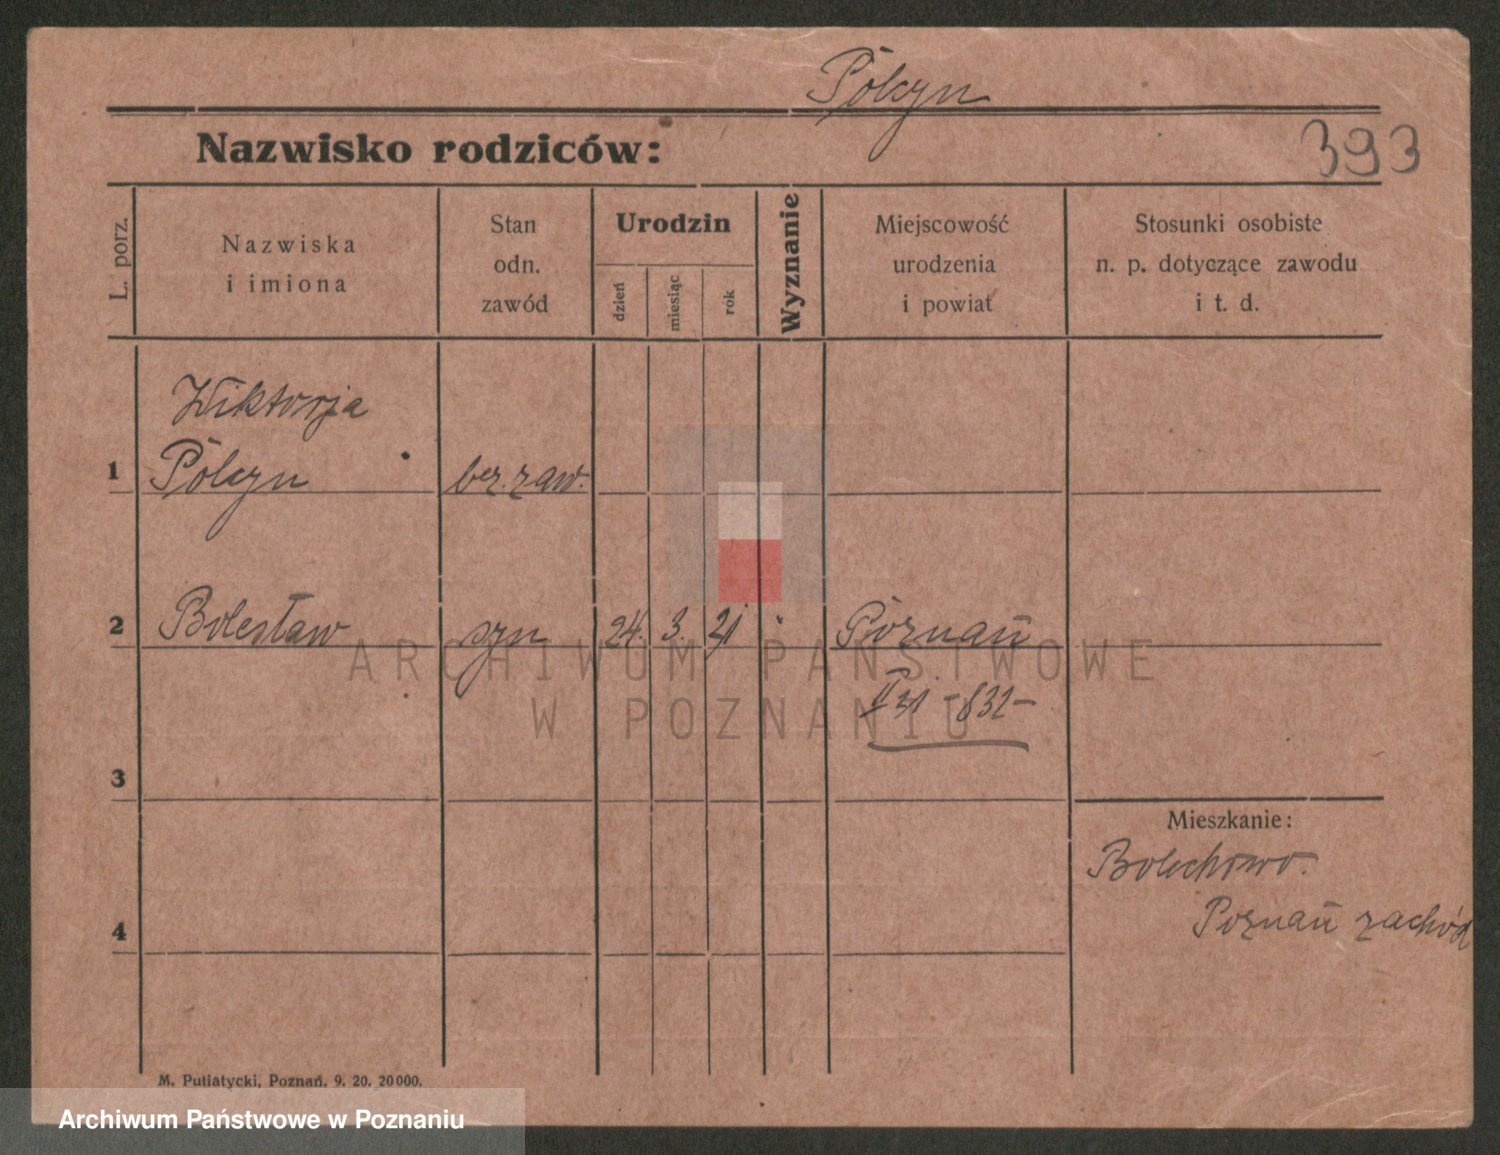 Pólczyn
Nazwisko rodziców:
393
L. porz.
Nazwiska
i imiona
Stan
odn.
zawód
Urodzin
dzień
miesiąc
rok
Wyznanie
Miejscowość
urodzenia
i powiat
Stosunki osobiste
n. p. dotyczące zawodu
i t. d.
Wiktorja
1 Pólczyn bez. zaw.
2 Bolesław syn 24. 3. 21 Poznań
ARCHIWUM PAŃSTWOWE
W POZNANIU
-832-
3
Mieszkanie:
Bolechowo.
Poznań zachód
4
M. Putiatycki, Poznań. 9. 20. 20000.
Archiwum Państwowe w Poznaniu